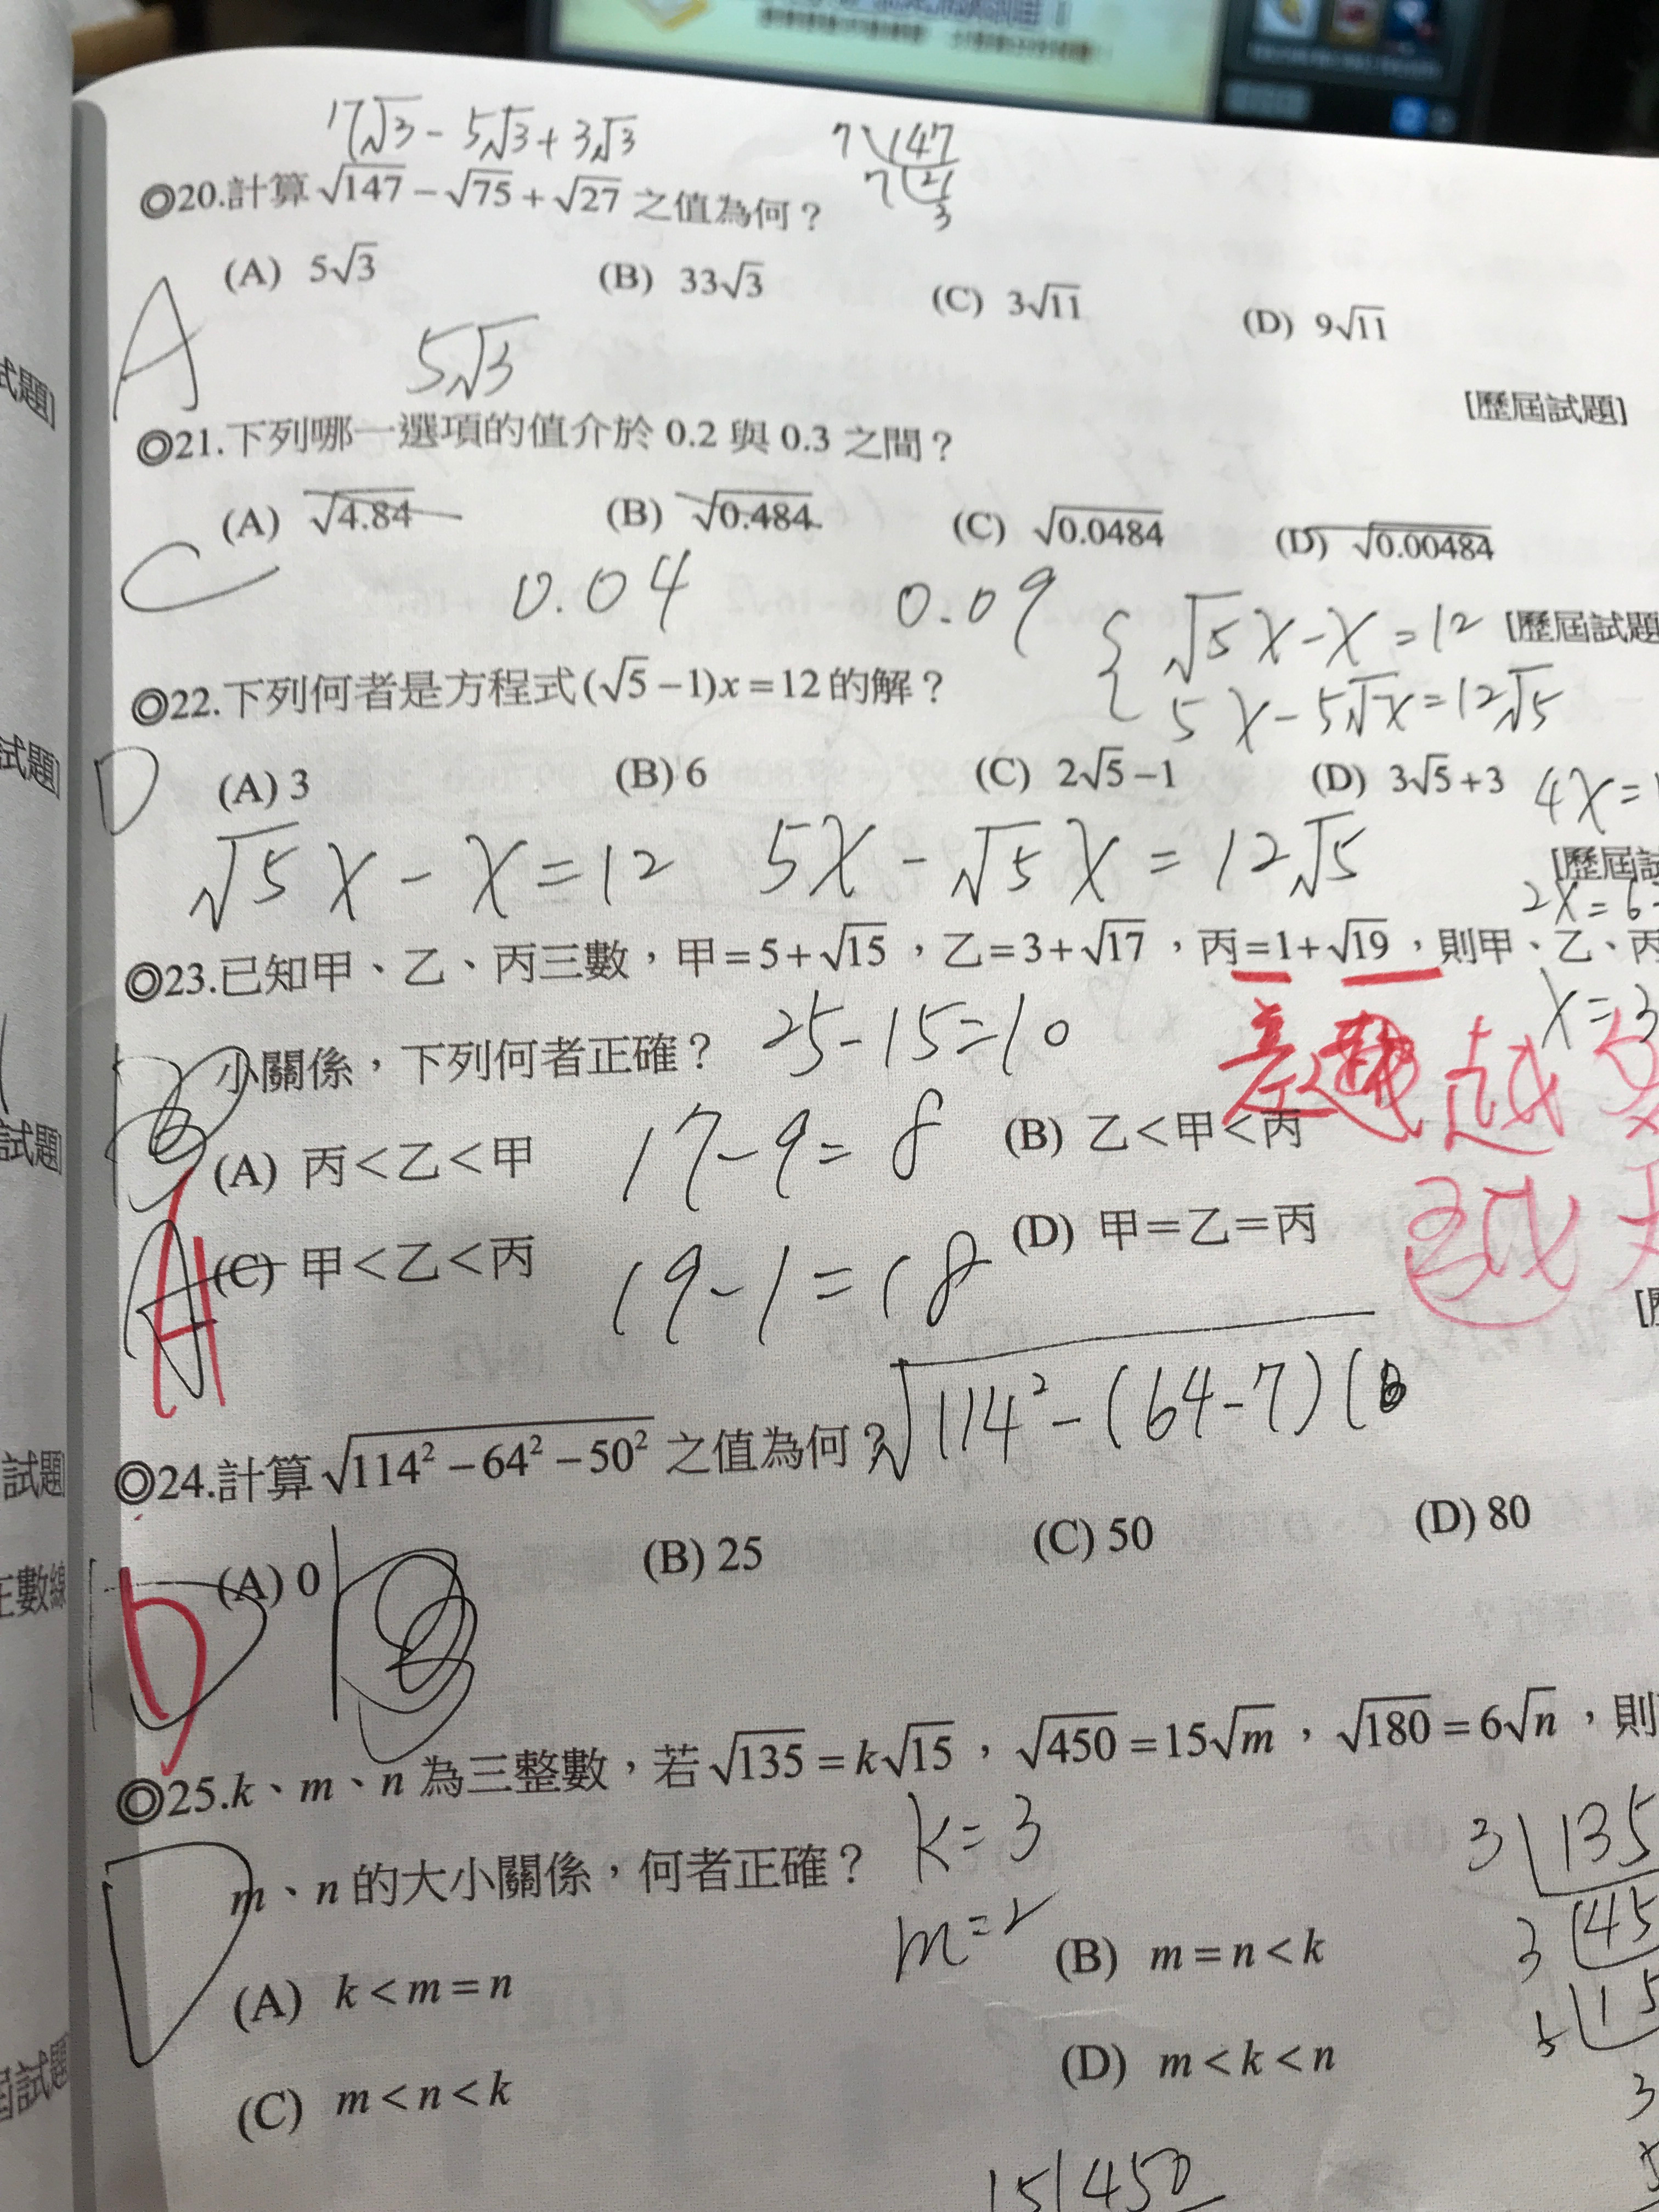 17√3 - 5√3 + 3√3
7 147
7 21
3
◎20.計算 √147 − √75 + √27 之值為何？
(A) 5√3 (B) 33√3 (C) 3√11 (D) 9√11
A
5√3
[歷屆試題]
◎21.下列哪一選項的值介於 0.2 與 0.3 之間？
(A) √4.84 (B) √0.484 (C) √0.0484 (D) √0.00484
C
0.04 0.09
√5x - x = 12
[歷屆試題
5x - 5√x = 12√5
◎22.下列何者是方程式(√5 −1)x = 12 的解？
D
(A) 3 (B) 6 (C) 2√5 −1 (D) 3√5 + 3
4x =
√5x - x = 12 5x - √5x = 12√5
[歷屆試
2x = 6
◎23.已知甲、乙、丙三數，甲 = 5 + √15 ，乙 = 3 + √17 ，丙 = 1 + √19 ，則甲、乙、丙
x = 3
小關係，下列何者正確？
25 - 15 = 10
差越
越
(A) 丙＜乙＜甲 (B) 乙＜甲＜丙
17 - 9 = 8
(C) 甲＜乙＜丙 (D) 甲＝乙＝丙
19 - 1 = 18
A
√114² - (64-7)(
◎24.計算 √114² − 64² − 50² 之值為何？
(A) 0 (B) 25 (C) 50 (D) 80
D
◎25.k、m、n 為三整數，若 √135 = k√15 ，√450 = 15√m ，√180 = 6√n ，則
k = 3
3 135
m、n 的大小關係，何者正確？
m = 2
3 45
D
(A) k < m = n (B) m = n < k
15
(C) m < n < k (D) m < k < n
3
15 450
式題]
試題]
試題]
試題]
E數線
試題